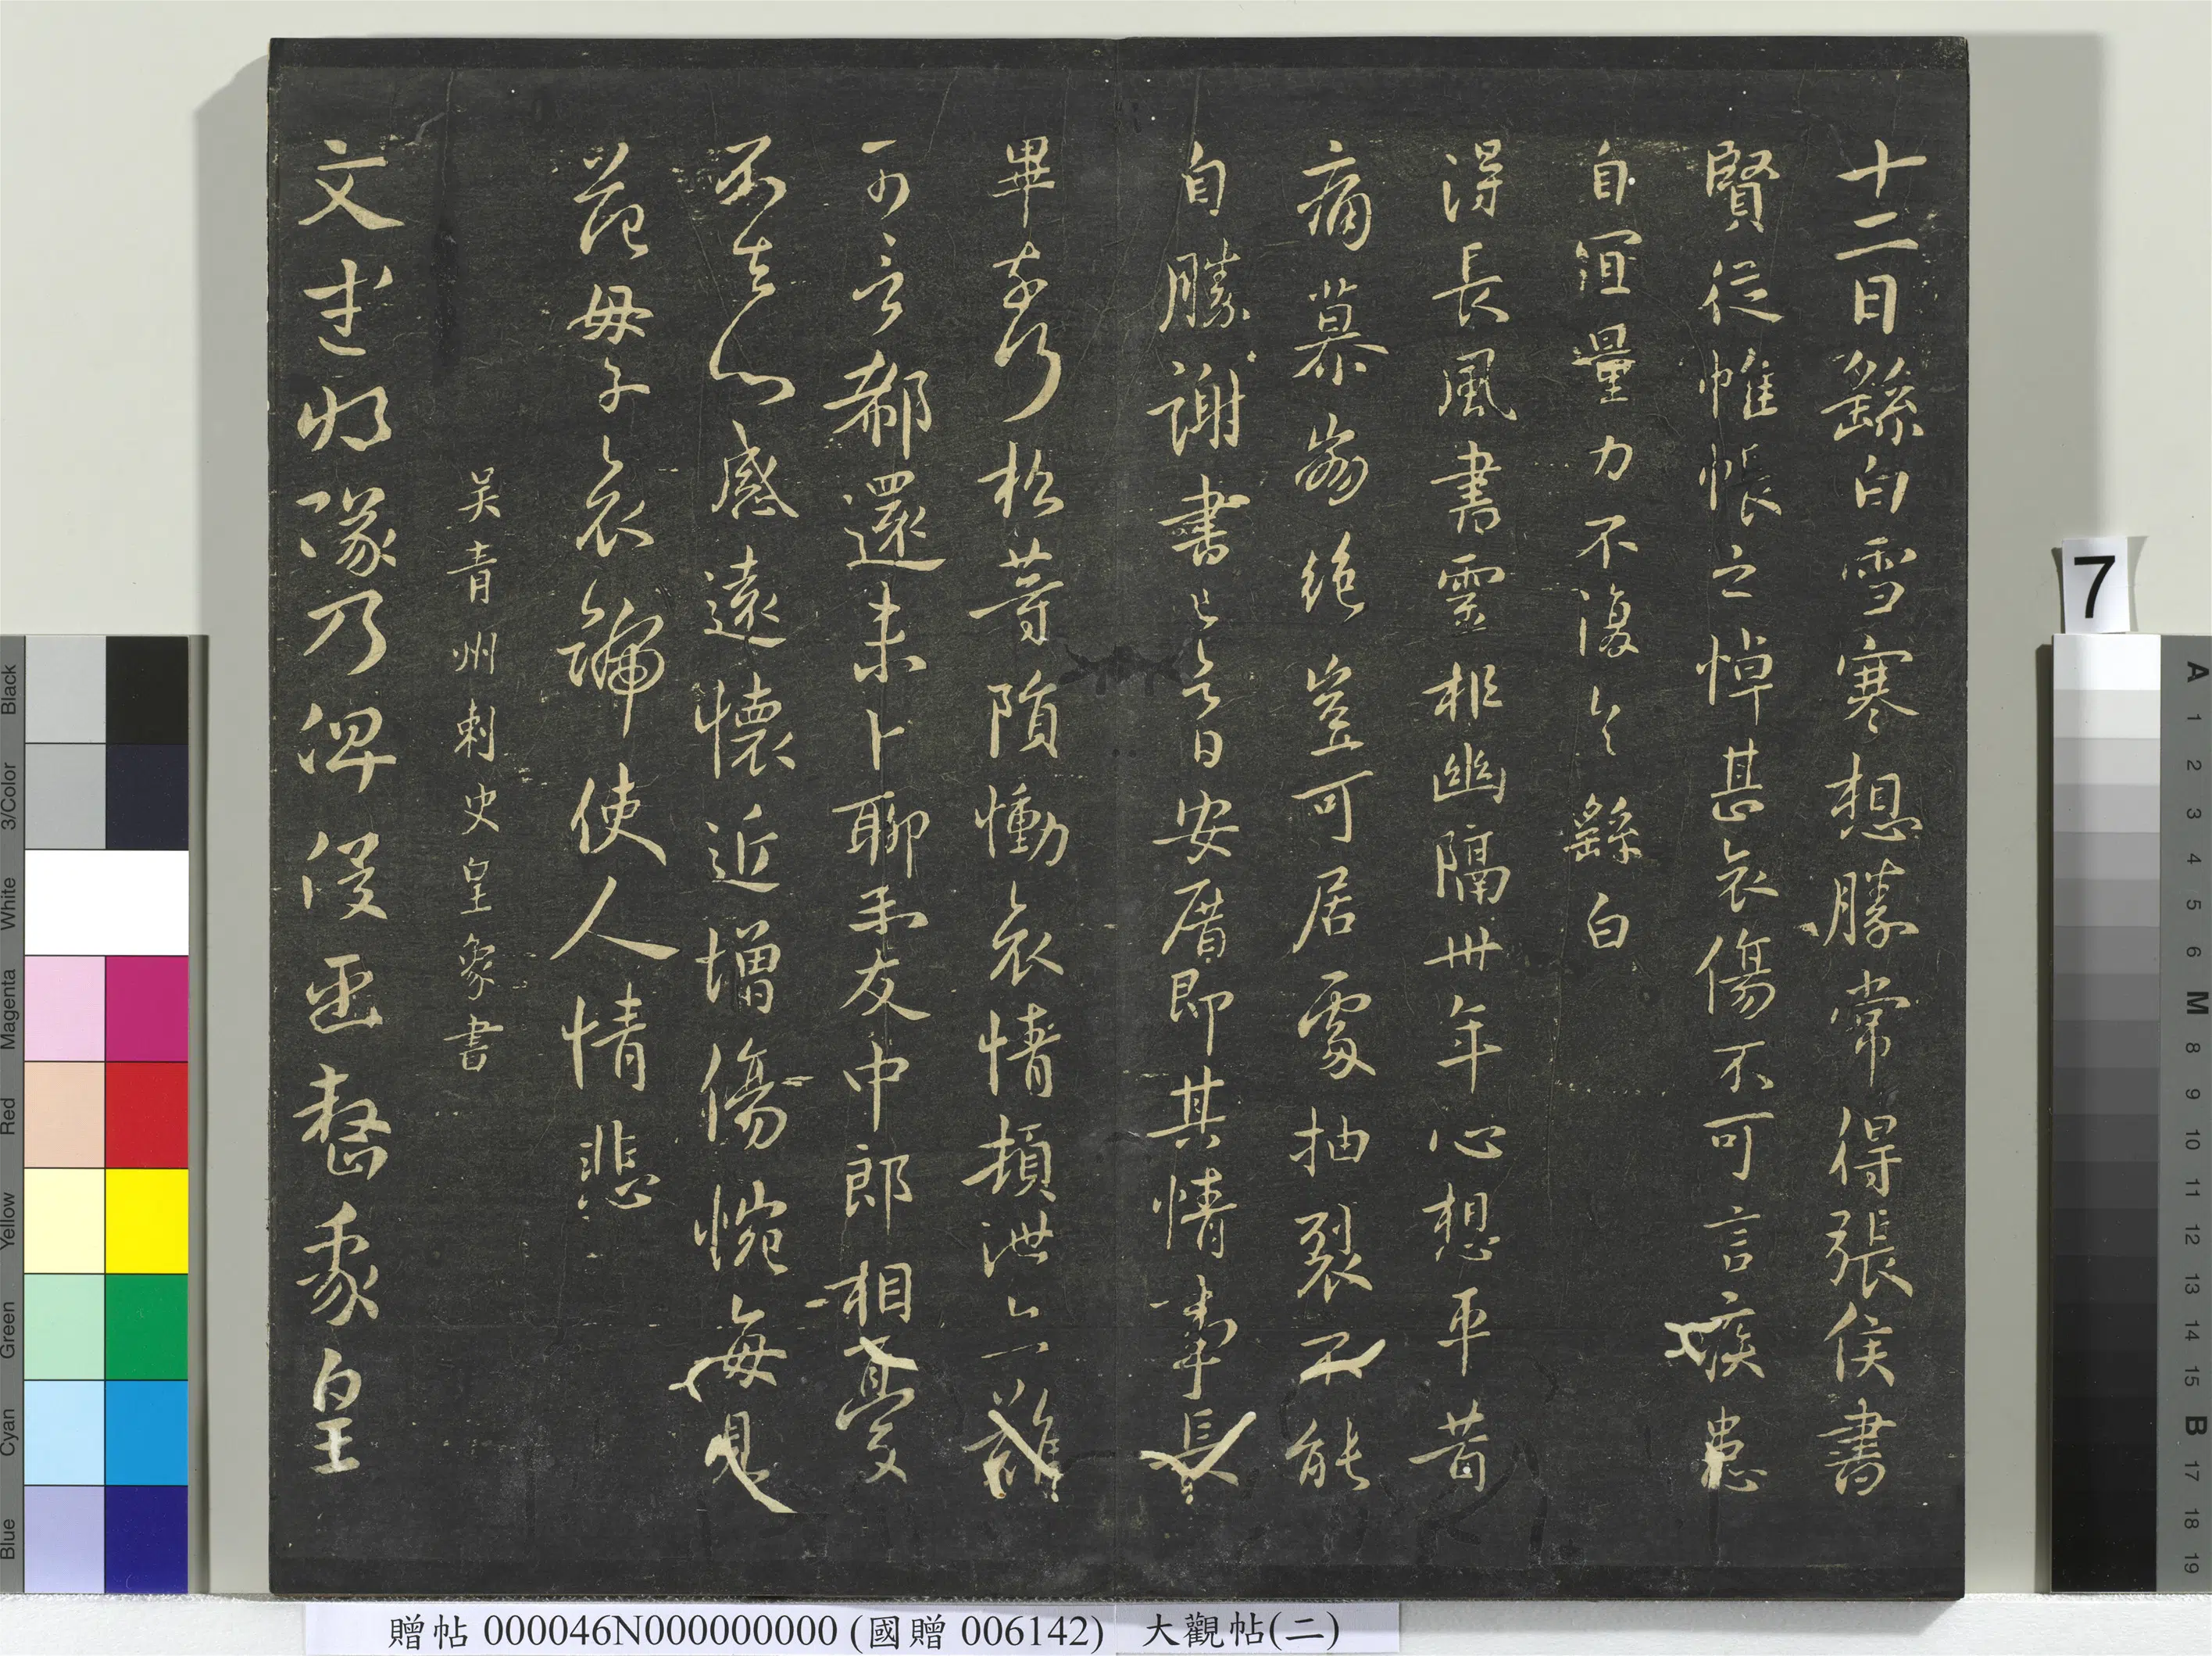 十二日繇白雪寒想勝常得張侯書
賢從帷帳之悼甚哀傷不可言疾患
自宜量力不復具繇白
得長風書靈柩幽隔卅年心想平昔
痛慕崩絕豈可居處抽裂不能
自勝謝書已具日安厝即其情事長
畢奉行松等隕慟哀情頓泄亦難
可言郗還未卜聊示友中郎相憂
不去心感遠懷近增傷惋每見
范母子哀號使人情悲
吴青州刺史皇象書
文武將隊乃俾侵正整豪皇
贈帖 000046N000000000 (國贈 006142) 大觀帖(二)
7
Blue Cyan Green Yellow Red Magenta White 3/Color Black
A 1 2 3 4 5 6 M 8 9 10 11 12 13 14 15 B 17 18 19